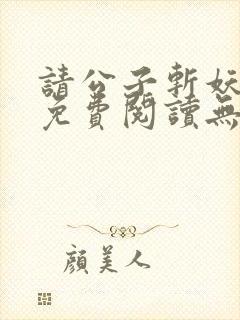 請公子斬妖
免費閱讀無
顏美人